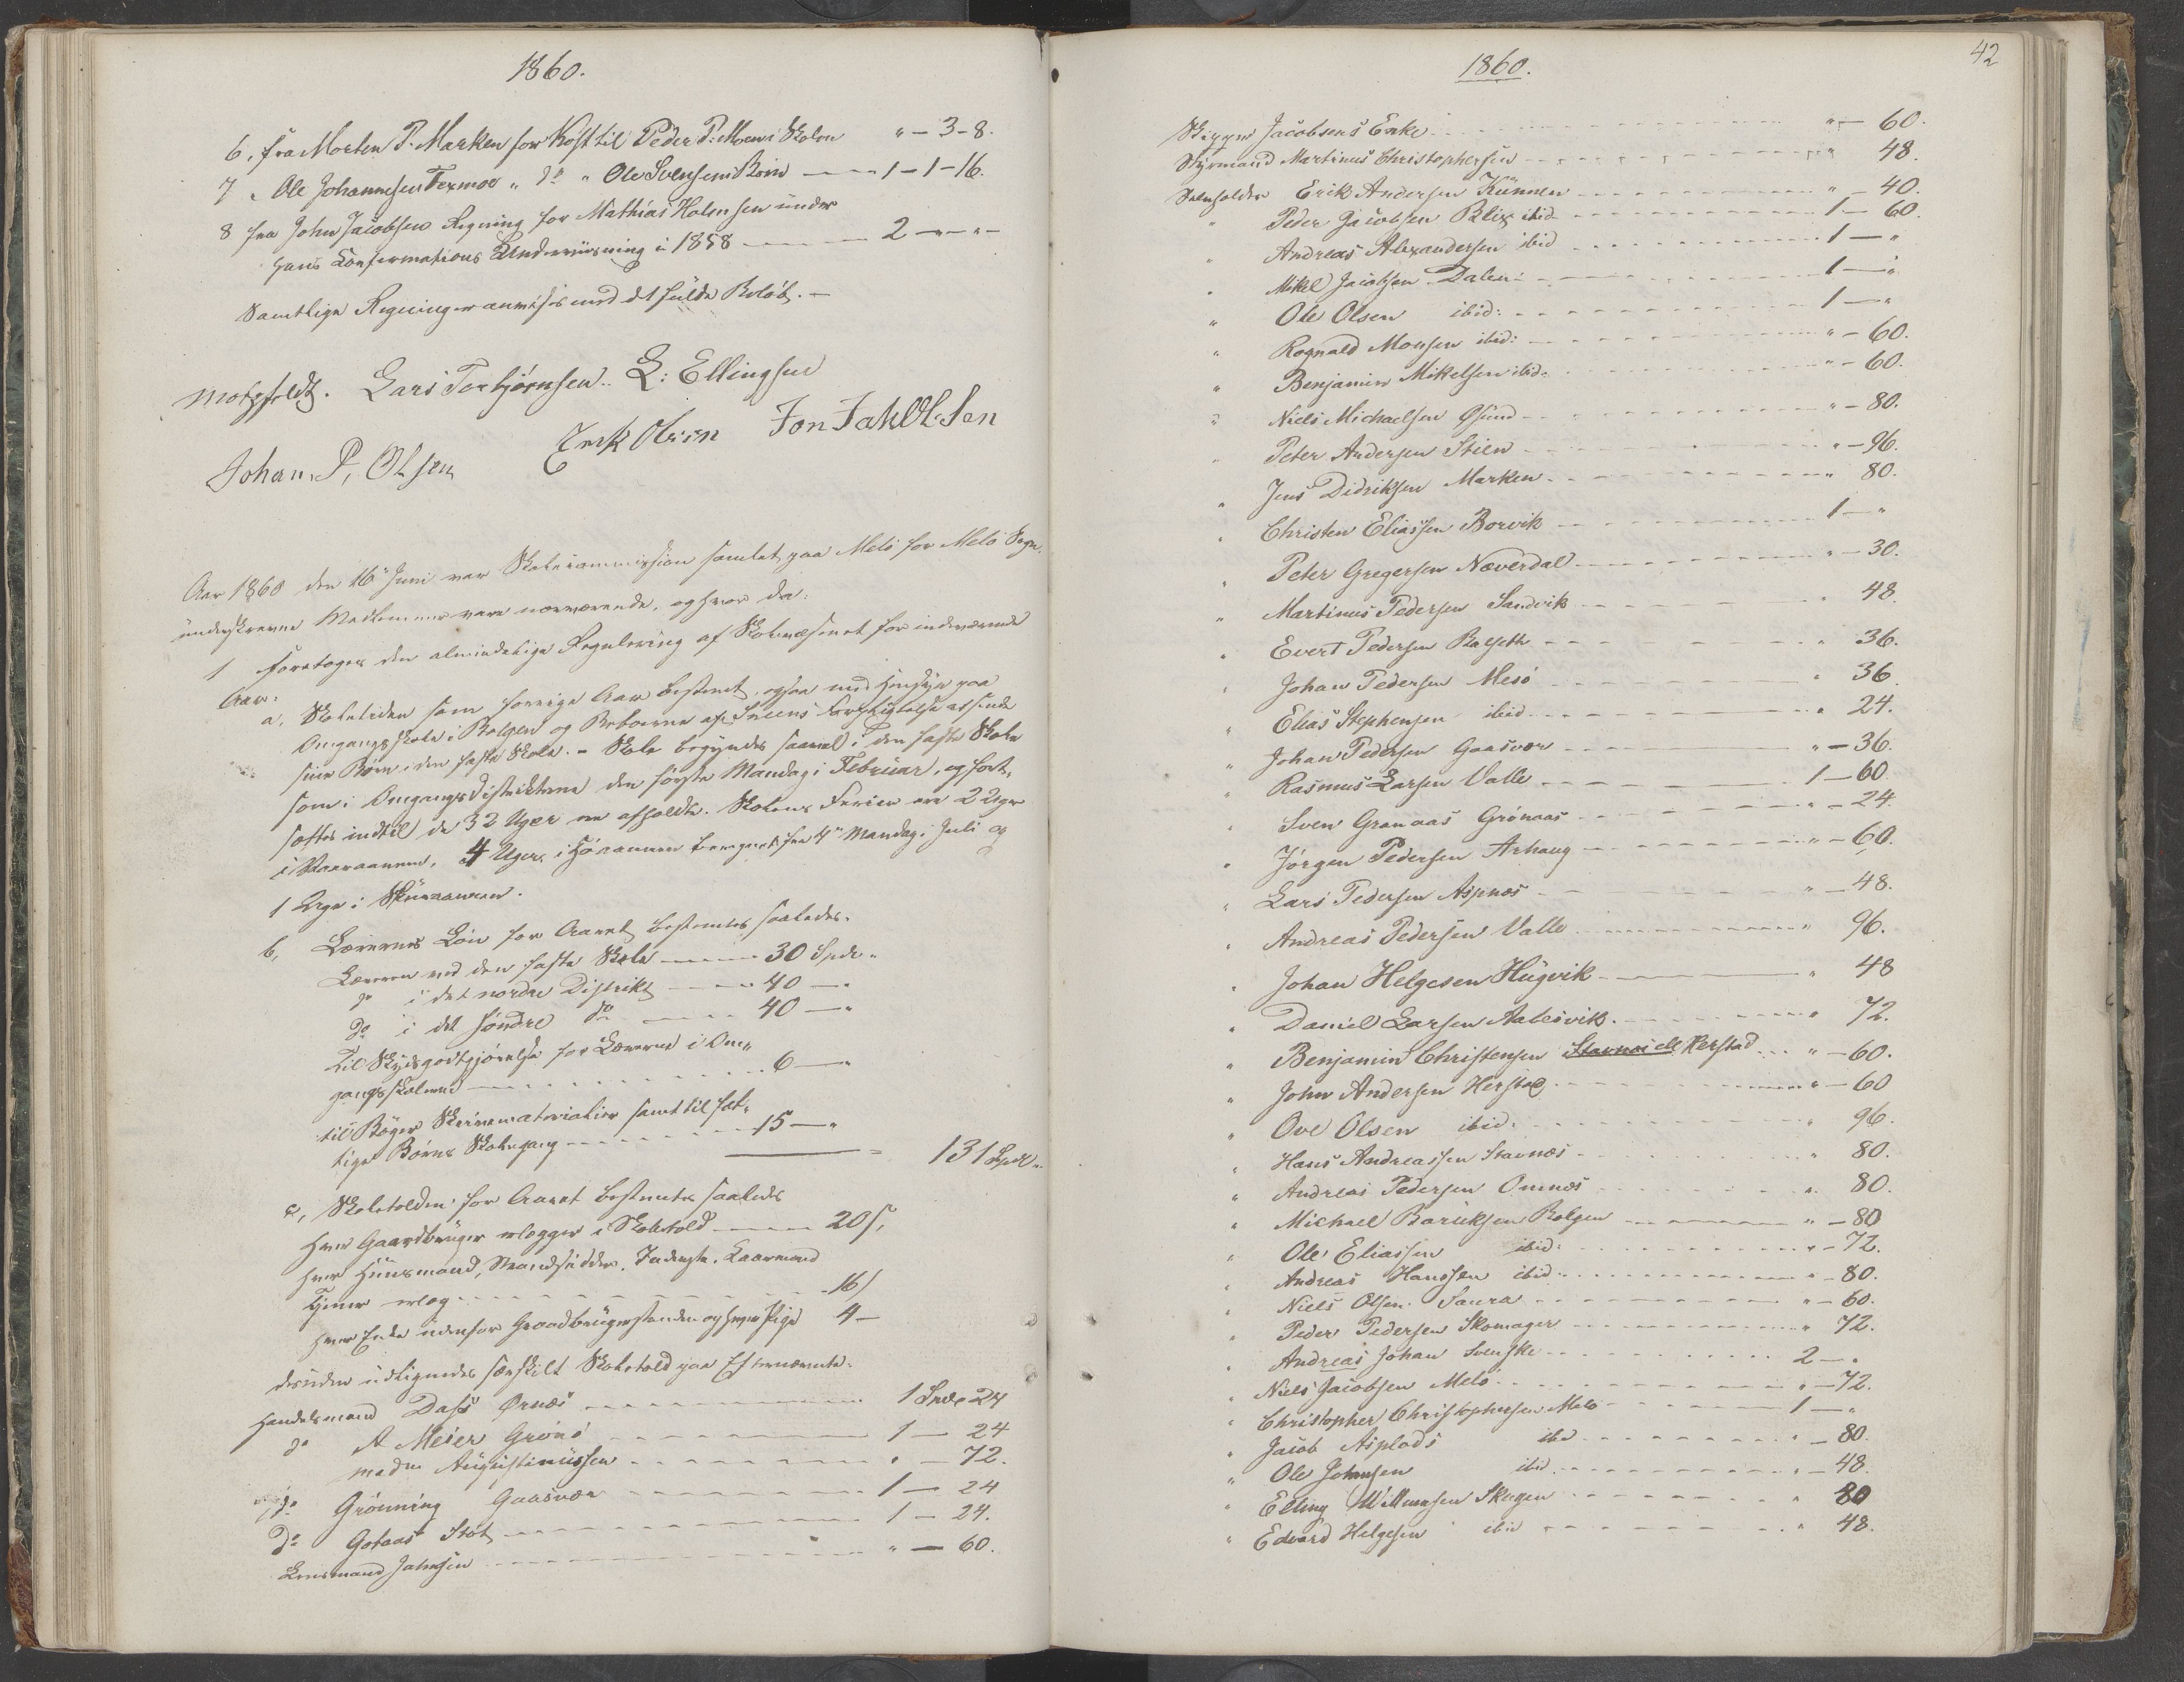 1860.
6, fra Morten P. Marken for Kost til Peder P: Moen i Skolen " - 3 - 8.
7 " Ole Johannesen Texmoe " do " Ole Svensens Børn 1 - 1 - 16.
8 fra John Jacobsen Regning for Mathias Holmsen under
hans Confirmations Underviisning i 1858 2 - " -
Samtlige Regninger anvises med det fulde Beløb. -
Motzfeldt. Lars Torbjørnsen. L: Ellingsen
Johan. P, Olsen Erik Olsen Jon JakObSen
Aar 1860 den 16de Juni var Skolecommission samlet paa Melø for Melø Sogn.
underskrevne Medlemmer vare nærværende, og hvor da:
1 foretoges den almindelige Regulering af Skolevæsenet for indeværende
Aar:
a, Skoletiden som forrige Aar bestemt, ogsaa med Hensyn paa
Omgangsskole i Bolgen og Beboerne af Støens Forpligtelse at sende
sine Børn i den faste Skole. - Skole begyndes saavel i den faste Skole
som i Omgangsdistrikterne den første Mandag i Februar, og fort-
sættes indtil de 32 Uger ere afholdte. Skolens Ferier ere 2 Uger
i Vaaraannen, 4 Uger i Høaannen beregnet fra 4de Mandag i Juli og
1 Uge i Skuraannen.
b, Lærernes Løn for Aaret bestemtes saaledes.
Læreren ved den faste Skole 30 Spdr "
do i det nordre Distrikt 40 - "
do i det søndre do 40 - "
Til Skydsgodtgjørelse for Lærerne i Om-
gangsskolerne 6 - "
til Bøger Skrivematerialier samt til fat-
tige Børns Skolegang 15 - "
131 Spdr "
c, Skoletolden for Aaret bestemtes saaledes
hver Gaardbruger erlægger i Skoletold 20 s,
hver Huusmand, Strandsidder, Inderste, Kaarmand
Tjener erlæg 16 s
hver Enke udenfor Gaardbrugerstanden og hver Pige 4 -
desuden udlignedes særskilt Skoletold paa Efternævnte.
Handelsmand Dass Ørnæs 1 Spdr 24
do A Meier Grønø 1 - 24
Madm Augustinussen " - 72.
do Grønning Gaasvær 1 - 24
do Gotaas Støt 1 - 24.
Lensmand Johnsen " - 60.
42
1860.
Skipper Jacobsens Enke " - 60.
Styrmand Martinus Christophersen " 48.
Selveholder Erik Andersen Kunnen " - 40.
" Peder Jacobsen Blix ibid 1 - 60.
" Andreas Alexandersen ibid 1 - "
" Mikel Jacobsen Dalen 1 - "
" Ole Olsen ibid: 1 - "
" Rognald Monsen ibid: " - 60.
" Benjamin Mikelsen ibid. " - 60.
" Niels Michaelsen Øsund " - 80.
" Peter Andersen Stien " - 96.
" Jens Didriksen Marken " 80.
" Christen Eliassen Borvik 1 - "
" Peter Gregersen Næverdal " - 30.
" Martinus Pedersen Sandvik " 48.
" Evert Pedersen Ralseth " 36.
" Johan Pedersen Mesø " 36.
" Elias Stephensen ibid " 24.
" Johan Pedersen Gaasvær " - 36.
" Rasmus Larsen Valle 1 - 60.
" Sven Granaas Grønaas " - 24.
" Jørgen Pedersen Arhaug " - 60.
" Lars Pedersen Aspnæs " - 48.
" Andreas Pedersen Valle " 96.
" Johan Helgesen Hugvik " 48
" Daniel Larsen Aalesvik. " 72.
" Benjamin Christensen Stavnæs ell Herstad " - 60.
" John Andersen Herstad " - 60
" Ove Olsen ibid: " 96.
" Hans Andreassen Stavnæs " 80.
" Andreas Pedersen Omnæs " 80.
" Michael Baruksen Bolgen " - 80
" Ole Eliassen ibid: " - 72.
" Andreas Hanssen ibid: " - 80.
" Niels Olsen Saura " - 60.
" Peder Pedersen Skomager " 72.
" Andreas Johan Svenske 2 - "
" Niels Jacobsen Melø " - 72.
" Christopher Christophersen Melø 1 - "
" Jacob Asplads ibd " - 80.
" Ole Johnsen ibid " - 48.
" Elling Willumsen Skagen " 80
" Edvard Helgesen ibid " 48.